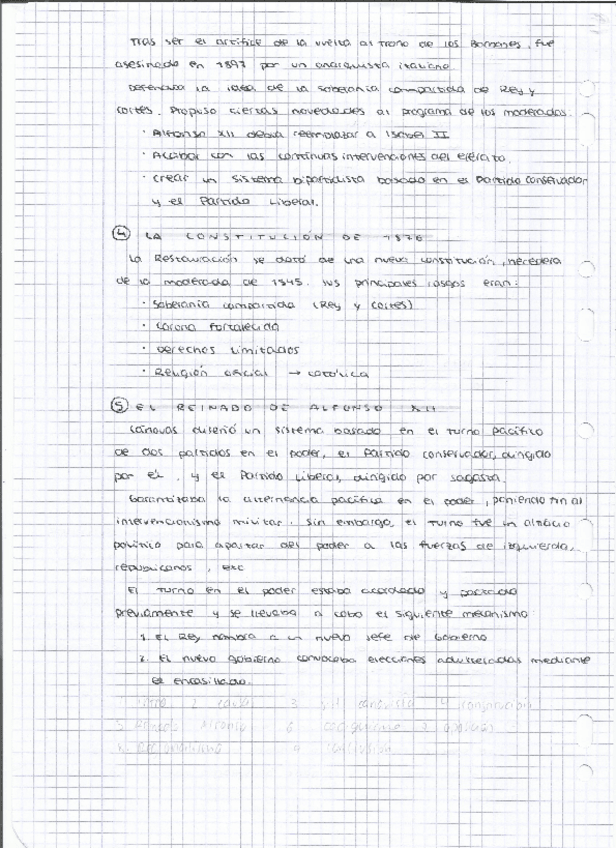 Tras ser el artífice de la vuelta al trono de los Borbones, fue
asesinado en 1897 por un anarquista italiano
Defendía la idea de la soberanía compartida de Rey y
Cortes. Propuso ciertas novedades al programa de los moderados:
· Alfonso XII debía reemplazar a Isabel II
· Acabar con las continuas intervenciones del ejército.
· Crear un sistema bipartidista basado en el Partido Conservador
y el Partido Liberal.
④ LA CONSTITUCIÓN DE 1876
La Restauración se dotó de una nueva constitución, heredera
de la moderada de 1845. Sus principales rasgos eran:
· Soberanía compartida (Rey y Cortes)
· Corona fortalecida
· Derechos limitados
· Religión oficial → católica
⑤ EL REINADO DE ALFONSO XII
Cánovas diseñó un sistema basado en el turno pacífico
de dos partidos en el poder, el Partido conservador, dirigido
por él, y el Partido Liberal, dirigido por Sagasta.
Garantizaba la alternancia pacífica en el poder, poniendo fin al
intervencionismo militar. Sin embargo, el turno fue un
político para apartar del poder a las fuerzas de izquierda,
republicanos, etc
El turno en el poder estaba acordado y pactado
previamente y se llevaba a cabo el siguiente mecanismo:
1. El Rey nombra a un nuevo Jefe de Gobierno
2. El nuevo gobierno convocaba elecciones adulteradas mediante
el encasillado.